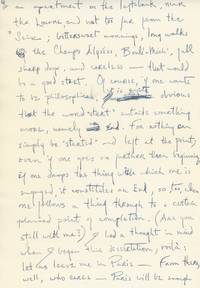 an apartment on the left bank, near
the Louvre and not too far from the
Seine; bittersweet mornings, long walks
the Champs Elysées, Boul-Mich', fall
sharp days, and careless — that would
be a good start. Of course, if one wants
to be philosophical, it is obvious
that the word "start" entails something
more, namely End. For nothing can
simply be "started" and left at the point,
even if one goes no further than beginning
if one drops the thing with which one is
engaged, it constitutes an End, so, too, when
one follows a thing through to a certain
planned point of completion. (Are you
still with me?) I had a thought in mind
when I began this dissertation, voilà:
let us leave me in Paris — From there,
well, who cares — Paris will be enough